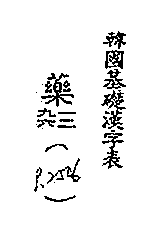 韓國基礎漢字表
藥
九六
(P.2526)